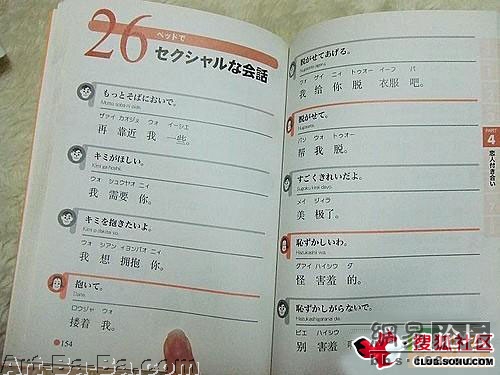 26
ベッドで
セクシャルな会話
もっとそばにおいで。
Motto soba ni oide.
ザァイ カオジュ ウォ イーシエ
再 靠近 我 一些。
キミがほしい。
Kimi ga hoshii.
ウォ シュウヤオ ニィ
我 需要 你。
キミを抱きたいよ。
Kimi o dakitai yo.
ウォ シアン イヨンバオ ニィ
我 想 拥抱 你。
抱いて。
Daite.
ロウジャ ウォ
搂着 我。
154
脱がせてあげる。
Nugasete ageru.
ウォ ゲイ ニィ トゥオー イーフ バ
我 给 你 脱 衣服 吧。
脱がせて。
Nugasete.
バン ウォ トゥオー
帮 我 脱。
すごくきれいだよ。
Sugoku kirei dayo.
メイ ジィラ
美 极了。
恥ずかしいわ。
Hazukashii wa.
グアイ ハイシウ ダ
怪 害羞 的。
恥ずかしがらないで。
Hazukashigaranai de.
ビエ ハイシウ
别 害羞
PART
4
恋人付き合い
Art-Ba-Ba.com
搜狐社区
CLUB.SOHU.COM